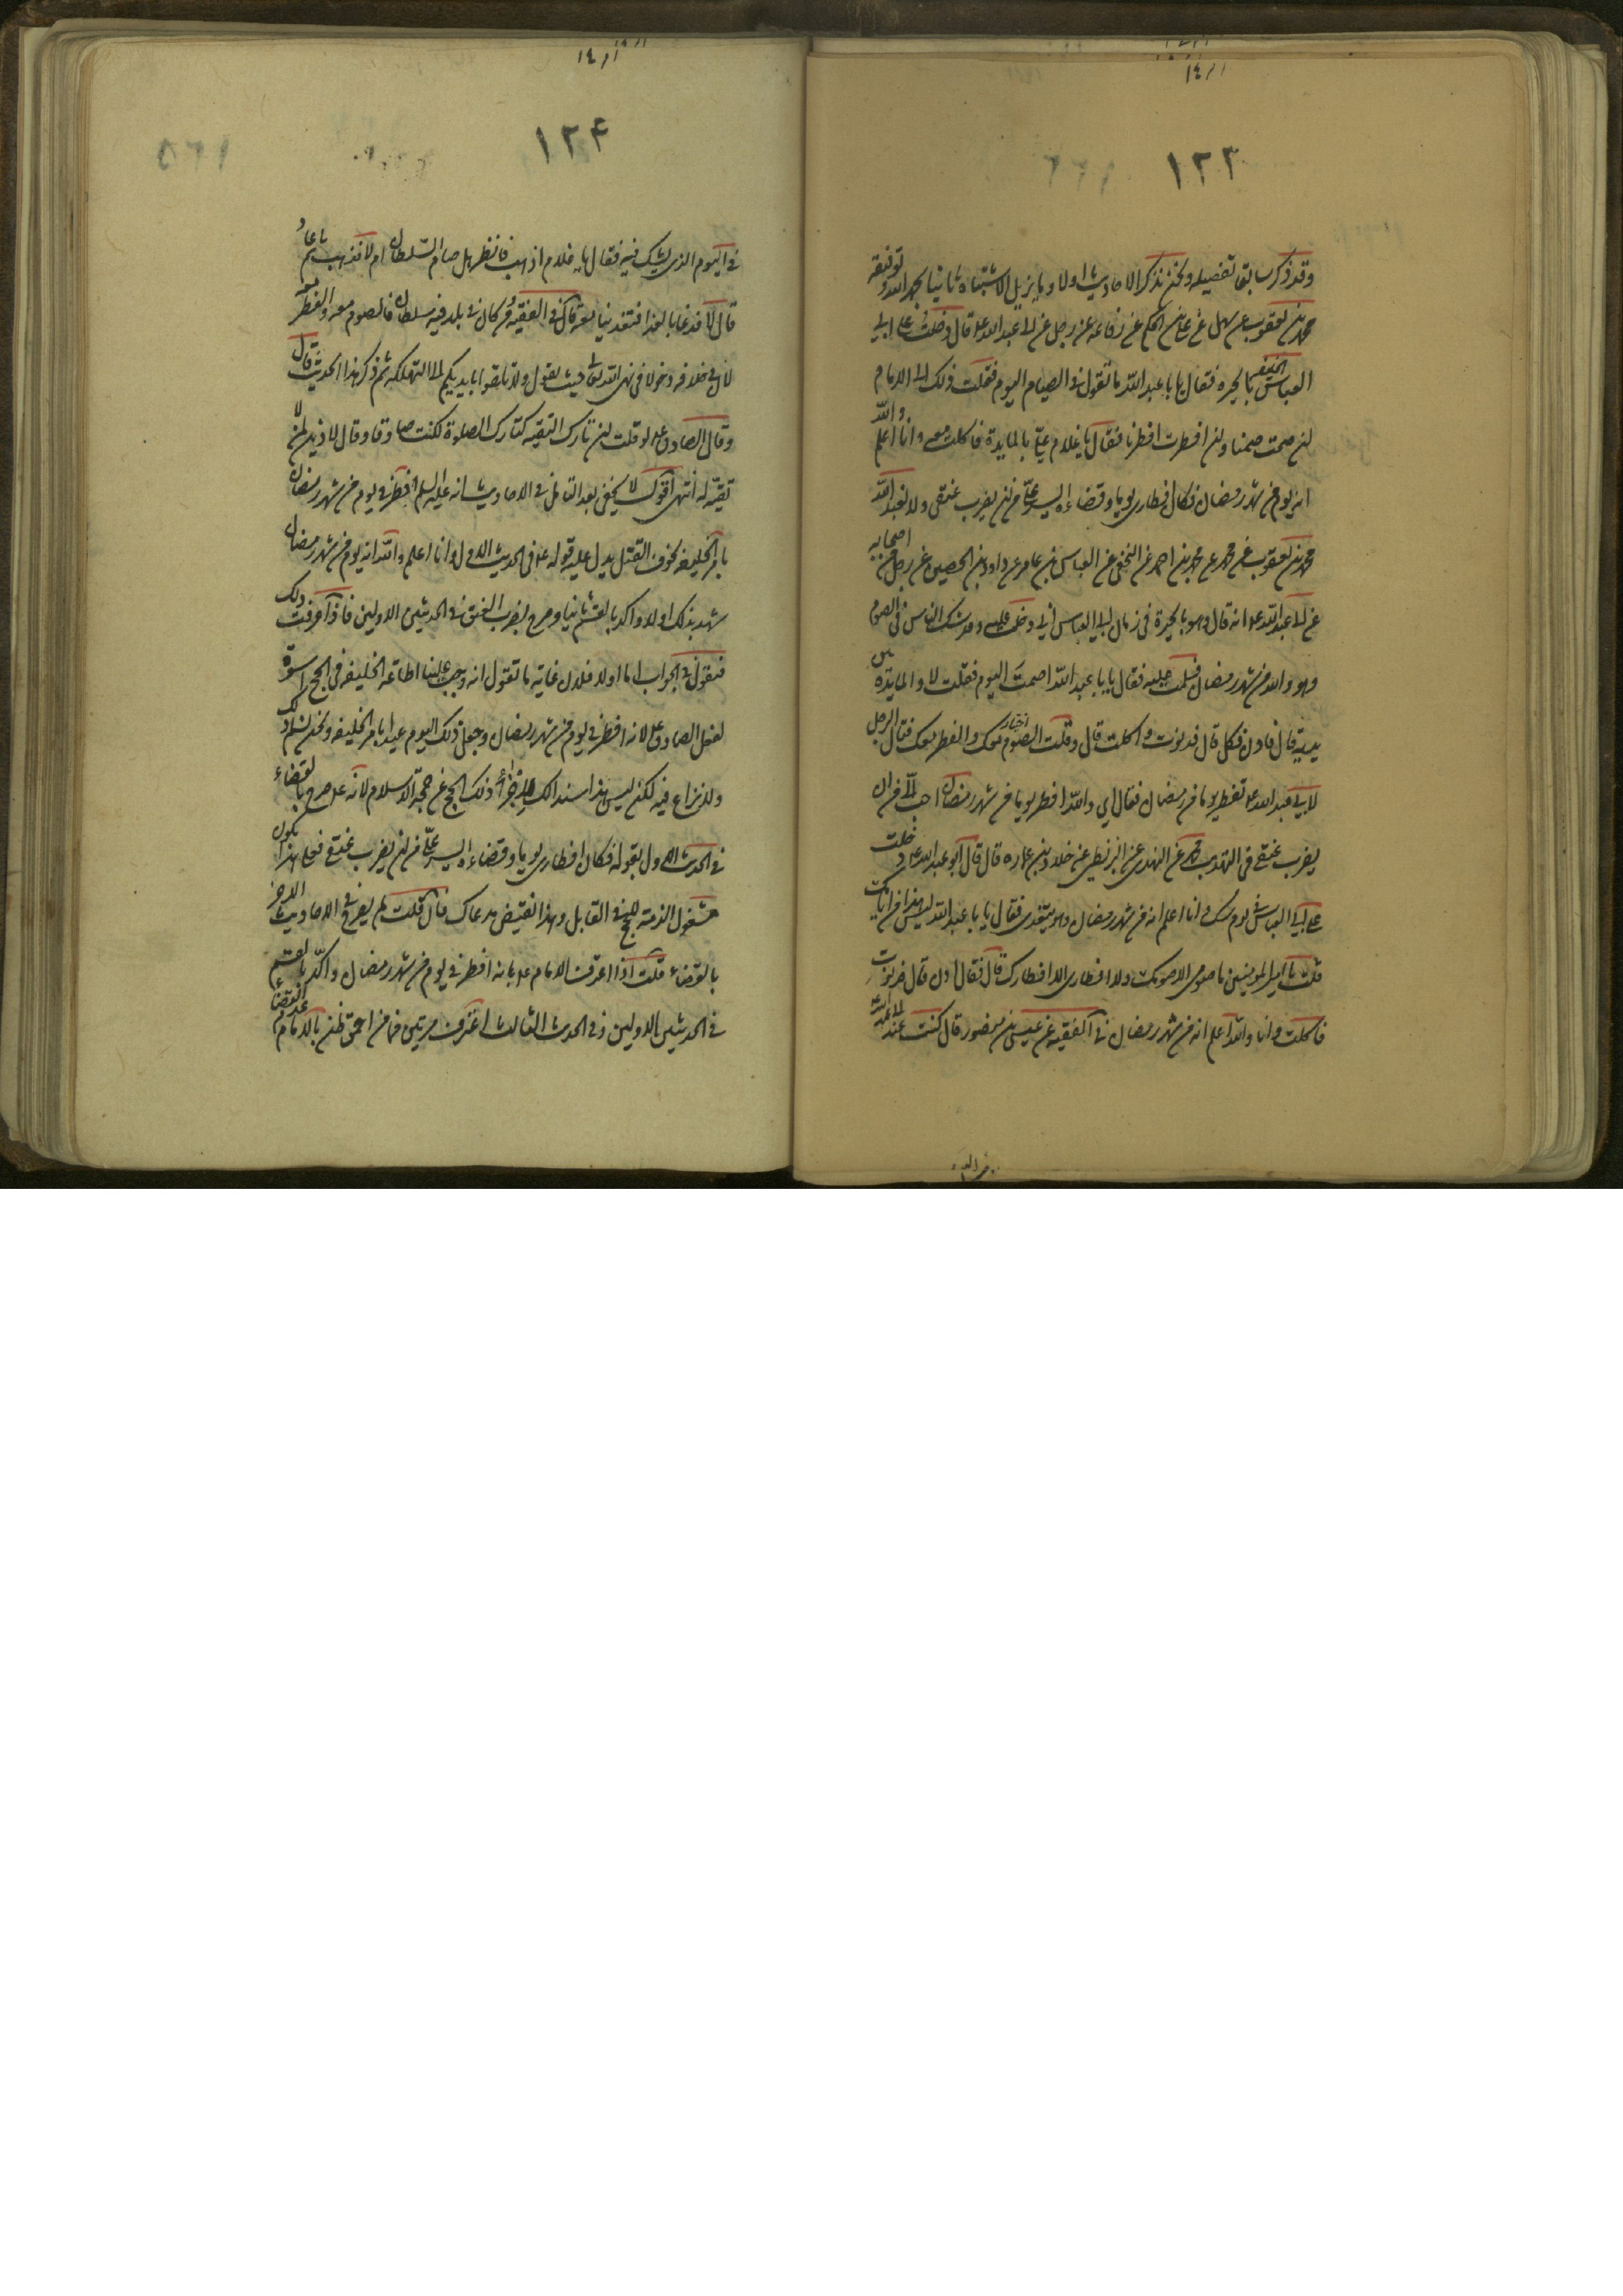 ١٢٣
وقد ذكر سابقا تفصيله ونحن نذكر الاحاديث اولا وما يزيل الاشتباه ثانيا بحمد الله وتوفيقه
محمد بن يعقوب عن سهل عن علي بن الحكم عن رفاعه عن رجل عن ابي عبد الله ع قال دخلت على ابي
العباس بالحيره فقال يا با عبد الله ما تقول في الصيام اليوم فقلت ذلك الى الامام
ان صمت صمنا وان افطرت افطرنا فقال يا غلام علي بالمايدة فاكلت معه وانا اعلم والله
انه يوم من شهر رمضان فكان افطاري يوما وقضاءه ايسر علي من ان يضرب عنقي ولا يعبد الله
محمد بن يعقوب عن محمد عن محمد بن احمد عن العباس بن عامر عن داود بن الحصين عن رجل من اصحابه
عن ابي عبد الله ع انه قال وهو بالحيرة في زمان ابي العباس اني دخلت عليه وقد شك الناس في الصوم
وهو والله من شهر رمضان فسلمت عليه فقال يا با عبد الله اصمت اليوم فقلت لا والمايدة بين
يديه قال فادن فكل قال فدنوت فاكلت قال وقلت الصوم معك والفطر معك فقال الرجل
لابي عبد الله ع تفطر يوما من رمضان فقال اي والله افطر يوما من شهر رمضان احب الي من ان
يضرب عنقي في التهذيب محمد عن النهدي عن البزنطي عن خلاد بن عماره قال قال ابو عبد الله ع دخلت
على ابي العباس في يوم شك وانا اعلم انه من شهر رمضان وهو يتغدى فقال يا با عبد الله ليس هذا من ايامك
قلت يا امير المومنين ما صومي الا صومك ولا افطاري الا افطارك قال فقال ادن قال فدنوت
فاكلت وانا والله اعلم انه من شهر رمضان في الفقيه عن عيسى بن منصور قال كنت عند ابي عبد الله
١٢۴
في اليوم الذي يشك فيه فقال يا غلام اذهب فانظر هل صام السلطان ام لا فذهب ثم عاد
قال لا فدعا بالغدا فتغدينا معه قال في الفقيه ومن كان في بلد فيه سلطان فالصوم معه والفطر معه
لان في خلافه دخولا في نهي الله تعالى حيث يقول ولا تلقوا بايديكم الى التهلكه ثم ذكر هذا الحديث قال
وقال الصادق ع لو قلت ان تارك التقيه كتارك الصلوة لكنت صادقا وقال لا دين لمن لا
تقيه له انتهى اقول لا يخفى بعد التامل في الاحاديث انه عليه السلم افطر في يوم من شهر رمضان
بامر الخليفه لخوف القتل يدل عليه قوله ع في الحديث الاول وانا اعلم والله انه يوم من شهر رمضان
شهد بذلك اولا واكد بالقسم ثانيا وصرح بضرب العنق في الحديثين الاولين فاذا عرفت ذلك
فنقول في الجواب اما اولا فلان غاية ما تقول انه وجب علينا اطاعه الخليفه في الحج اسوة
لفعل الصادق ع لانه افطر في يوم من شهر رمضان وجعل ذلك اليوم عيدا بامر الخليفه ونحن نسلم ذلك
ولا نزاع فيه لكن ليس هذا سندا لك ذلك الحج عن حجة الاسلام لانه ع صرح بالقضاء
في الحديث الاول بقوله فكان افطاري يوما وقضاءه ايسر علي من ان يضرب عنقي فعلى هذا يكون
مشغول الذمة للحج في القابل وهذا نقيض مدعاك فان قلت لم يصرح في الاحاديث الاخر
بالقضاء قلت اذا اعترف الامام ع بانه افطر في يوم من شهر رمضان واكد بالقسم
في الحديثين الاولين وفي الحديث الثالث اعترف مرتين فما من احمق يظن بالامام عدم القضاء